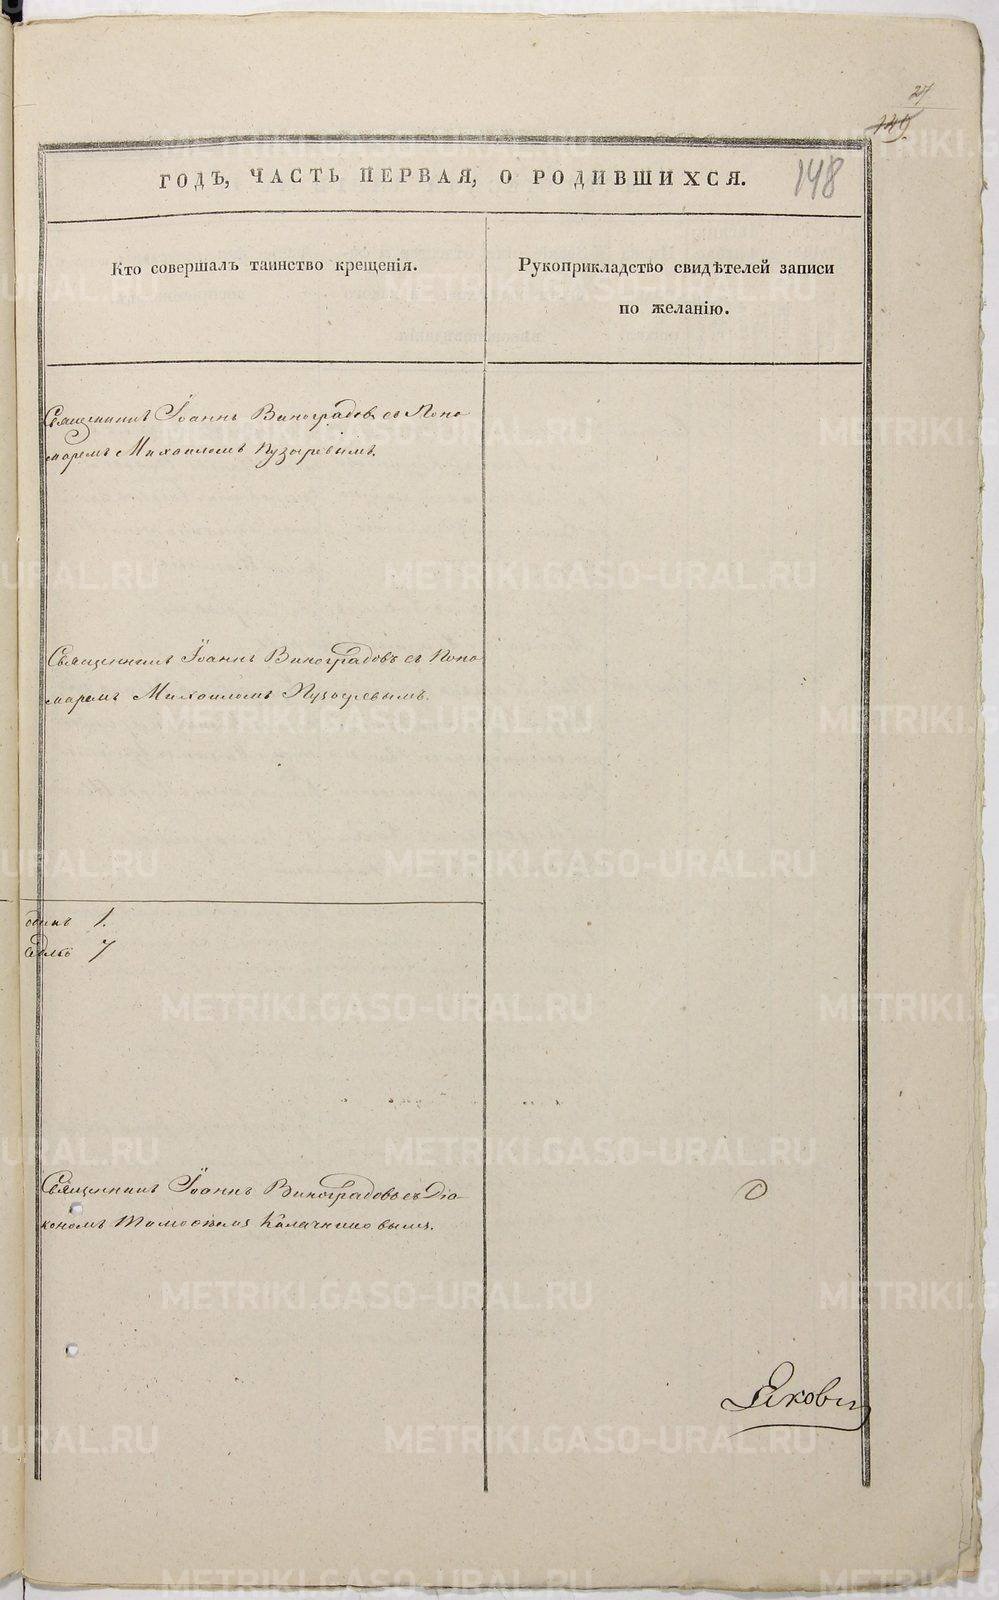 27
149.
148
ГОДЪ, ЧАСТЬ ПЕРВАЯ, О РОДИВШИХСЯ.
Кто совершалъ таинство крещенія.
Рукоприкладство свидѣтелей записи
по желанію.
Священникъ Іоаннъ Виноградовъ съ Поно
маремъ Михаиломъ Пузыревымъ.
Священникъ Іоаннъ Виноградовъ съ Поно
маремъ Михаиломъ Пузыревымъ.
одинъ 1.
7
Священникъ Іоаннъ Виноградовъ съ Діа
кономъ Тимофеемъ Калачниковымъ.
METRIKI.GASO-URAL.RU